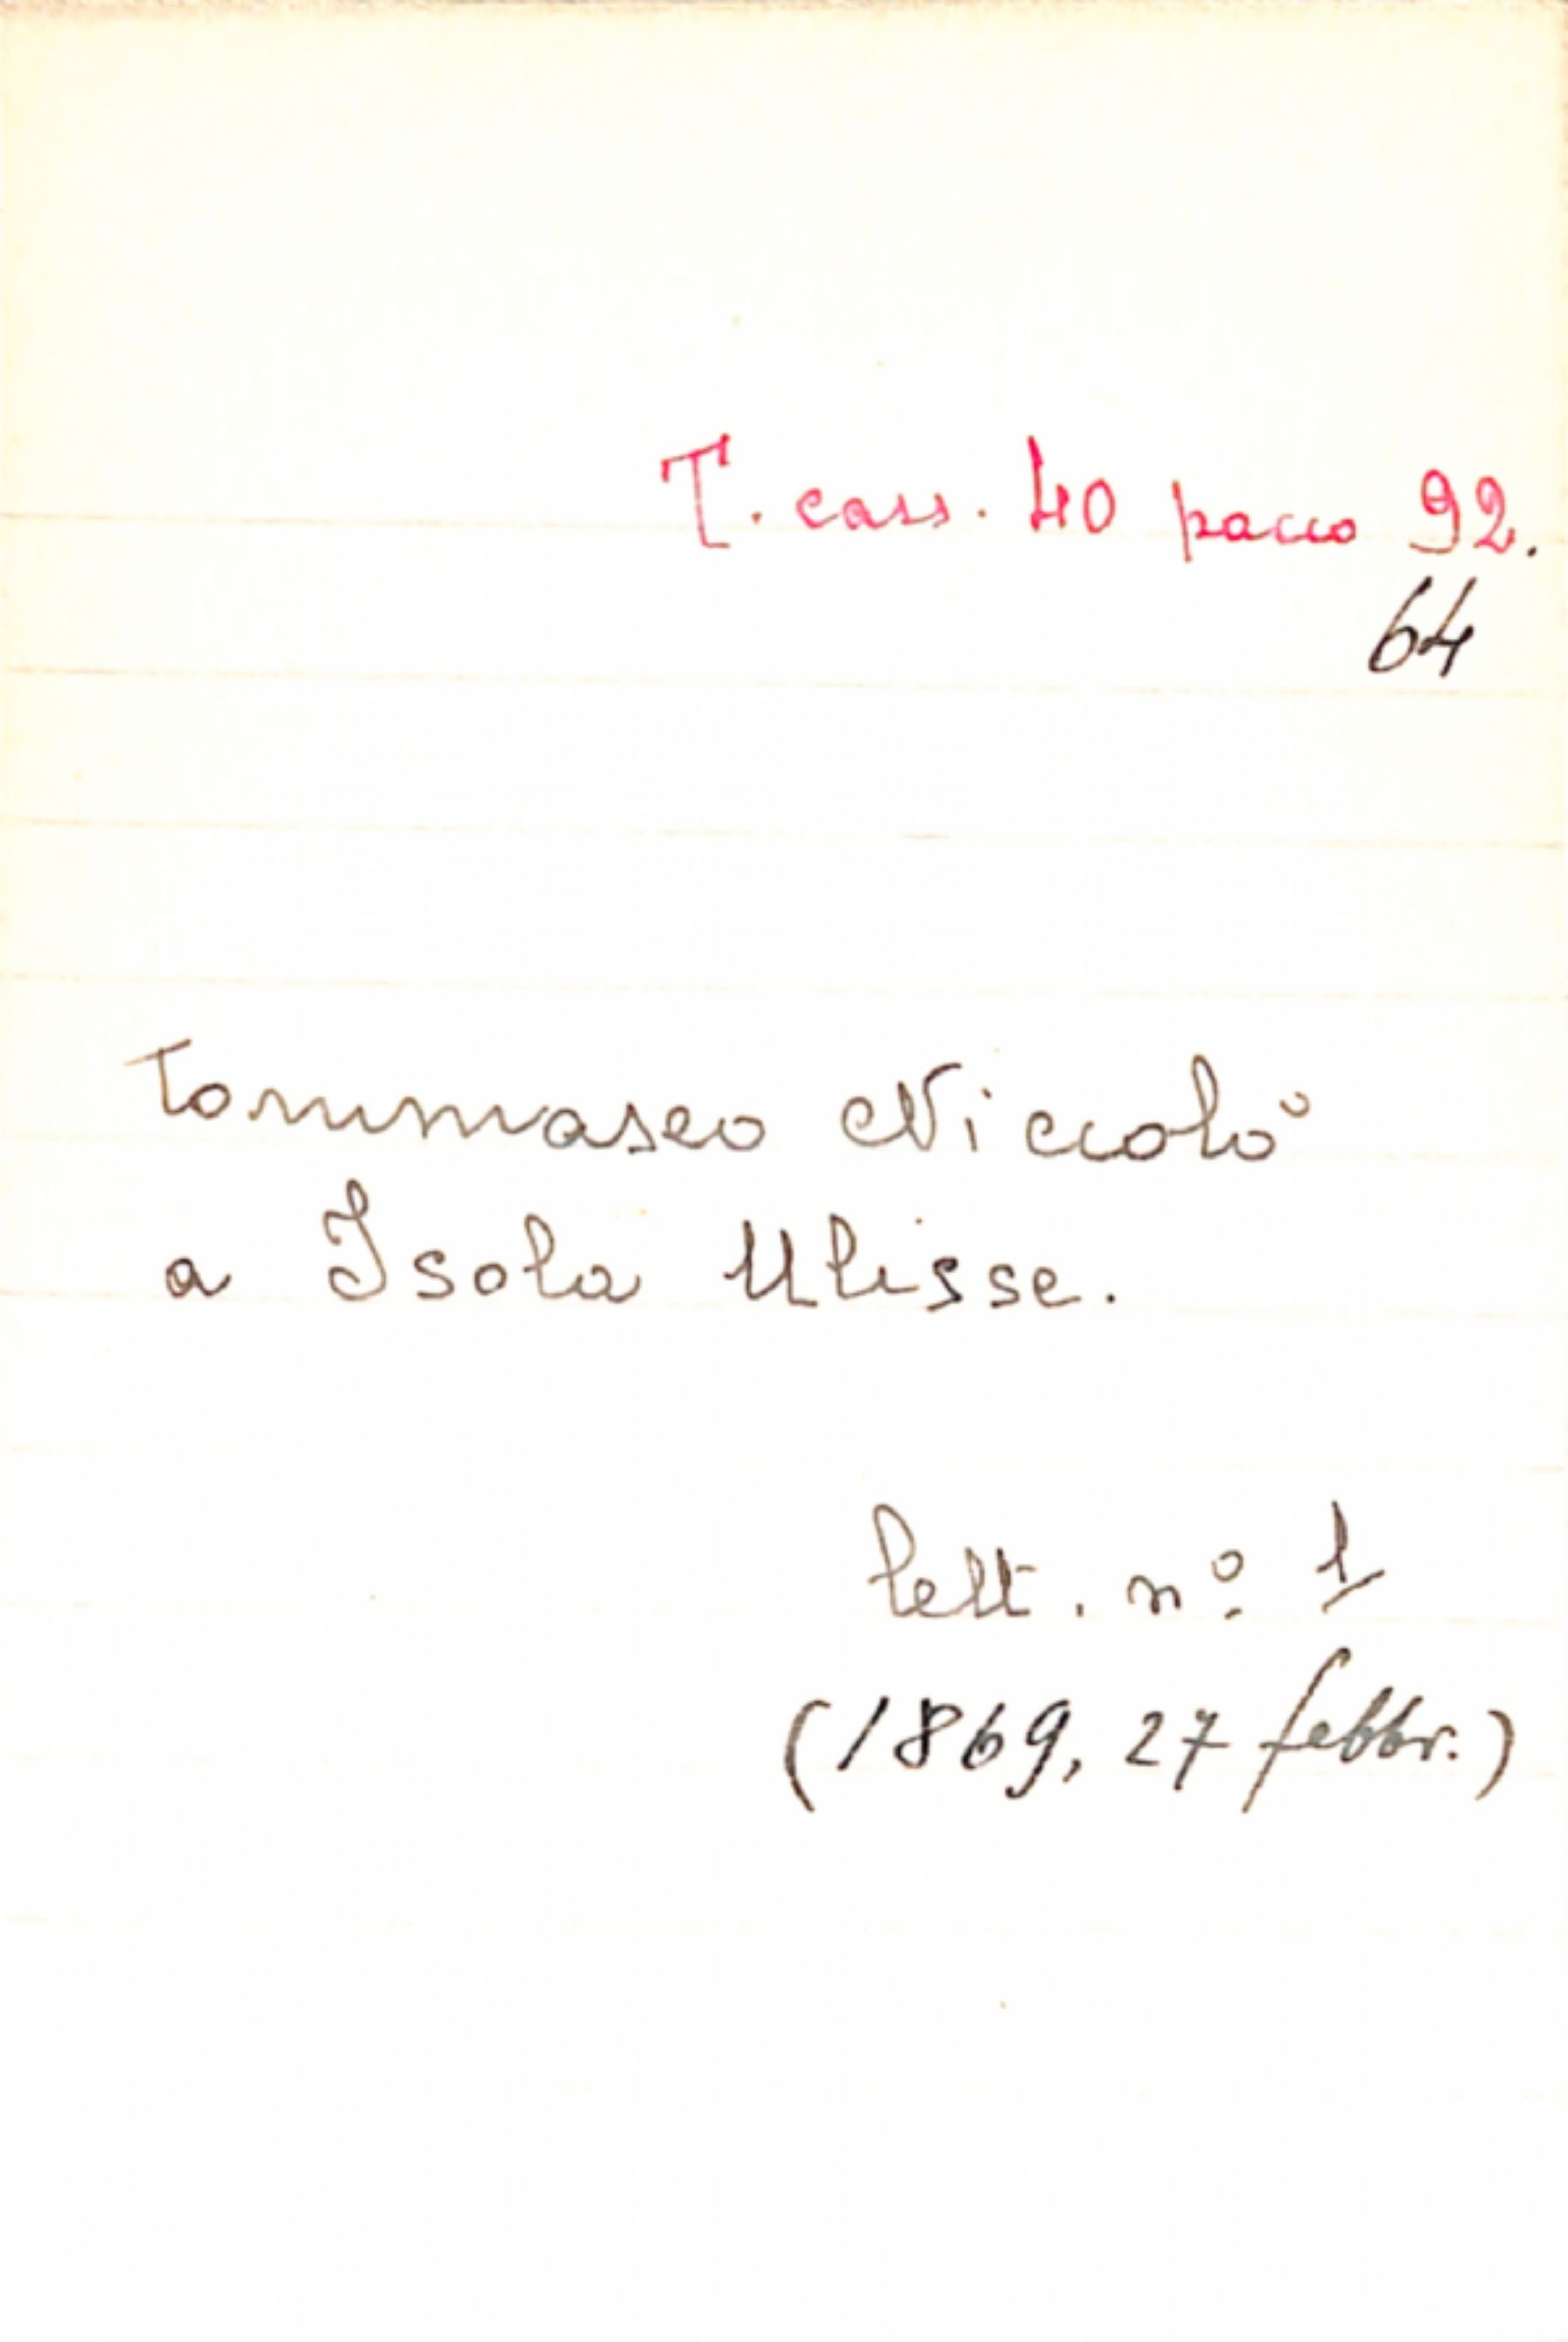 T. cass. 40 pacco 92.
64
Tommaseo Niccolò
a Isola Ulisse.
lett. nº 1
(1869, 27 febbr.)